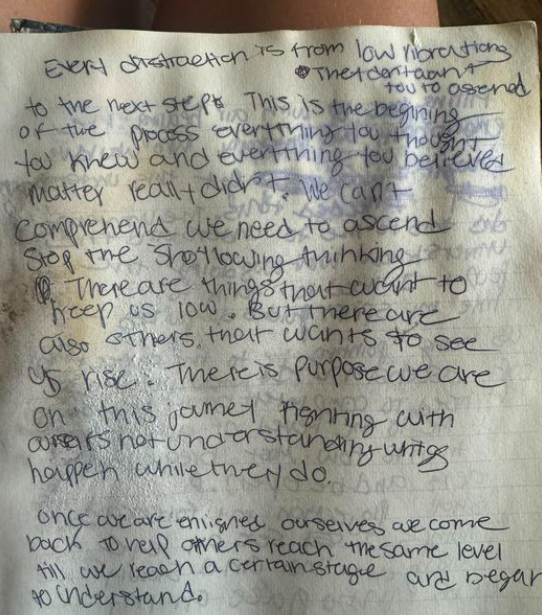 Every distraction is from low vibrations
They don't want
you to ascend
to the next step. This is the begining
of the process everything you thought
you knew and everything you believed
matter really didn't. We can't
comprehend we need to ascend
Stop the shallowing thinking
There are things that want to
keep us low. But there are
also others that wants to see
us rise. There is purpose we are
on this journey fighting with
not understanding
happen while they do.
once we are enligned ourselves we come
back to help others reach the same level
till we reach a certain stage and began
to understand.